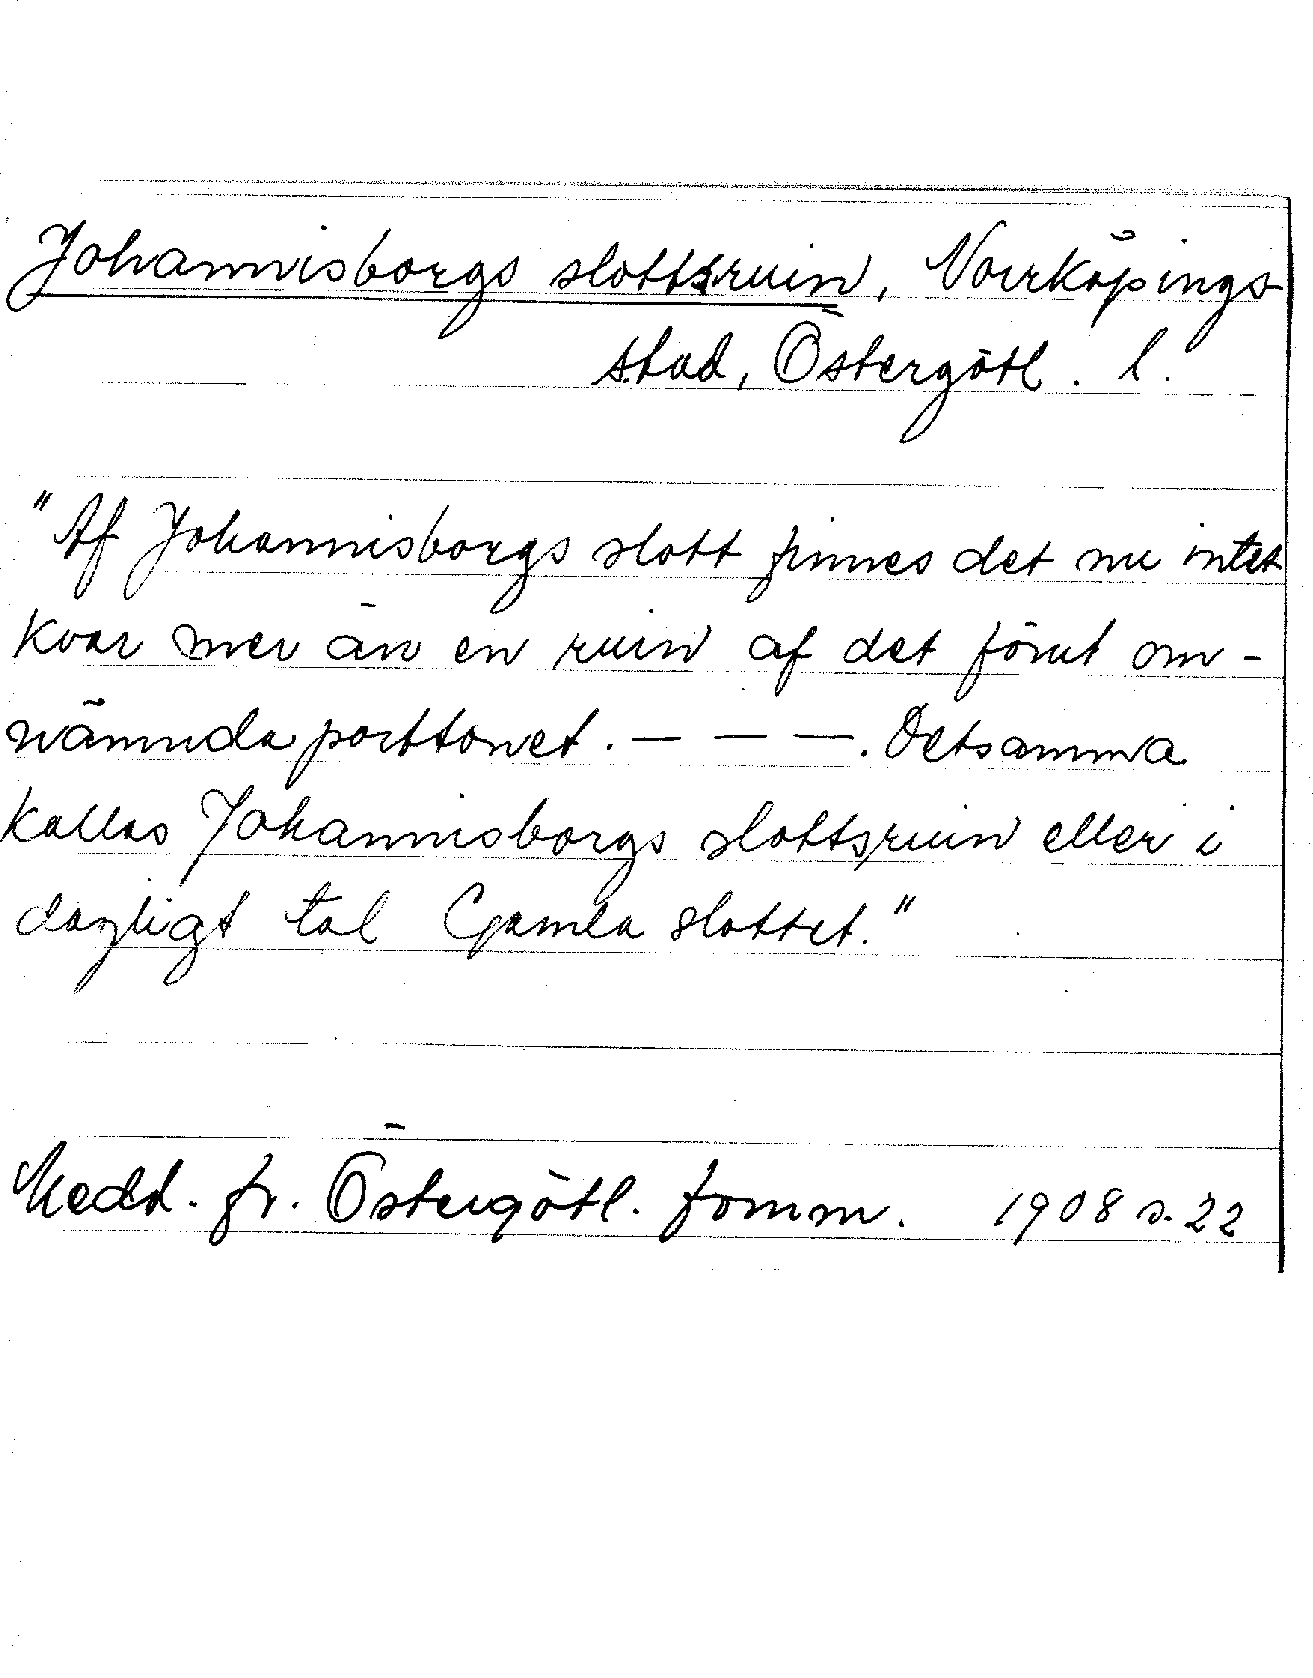 Johannisborgs slottsruin, Norrköpings
stad, Östergötl. l.
"Af Johannisborgs slott finnes det nu intet
kvar mer än en ruin af det förut om-
nämnda porttornet. — — —. Detsamma
kallas Johannisborgs slottsruin eller i
dagligt tal Gamla slottet."
Medd. fr. Östergötl. fornm. 1908 s. 22